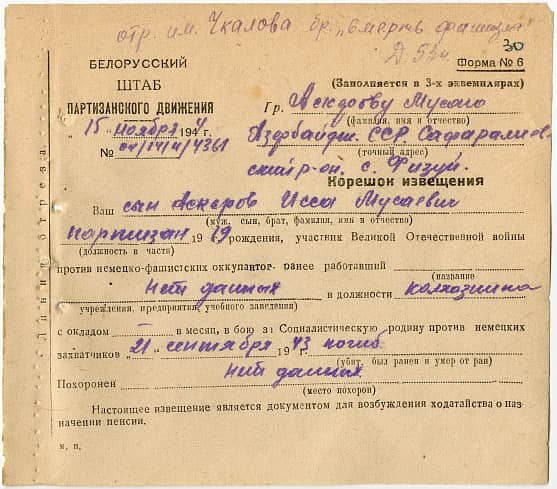 отр. им. Чкалова бр. „Смерть фашизма"
Д. 53и
30
БЕЛОРУССКИЙ
ШТАБ
ПАРТИЗАНСКОГО ДВИЖЕНИЯ
„15" ноября 1944 г.
№ 04/14/4/4361
Форма № 6
(Заполняется в 3-х экземплярах)
Гр. Мусаго
(фамилия, имя и отчество)
Азербайдж. ССР,
(точный адрес)
ский р-он. с. Физул.
Корешок извещения
Ваш сын Аскеров Исса Мусаевич
(муж, сын, брат, фамилия, имя и отчество)
партизан 1919 рождения, участник Великой Отечественной войны
(должность в части)
против немецко-фашистских оккупантов ранее работавший
(название
нет данных в должности колхозника
учреждения, предприятия, учебного заведения)
с окладом — в месяц, в бою за Социалистическую родину против немецких
захватчиков „21" сентября 1943 г. погиб
(убит, был ранен и умер от ран)
Похоронен нет данных
(место похорон)
Настоящее извещение является документом для возбуждения ходатайства о наз-
начении пенсии.
м. п.
Линия отреза